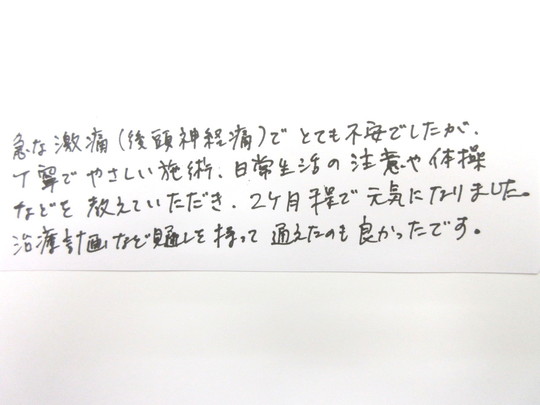 急な激痛(後頭神経痛)でとても不安でしたが、
丁寧でやさしい施術、日常生活の注意や体操
などを教えていただき、2ヶ月程で元気になりました。
治療計画など見通しを持って通えたのも良かったです。